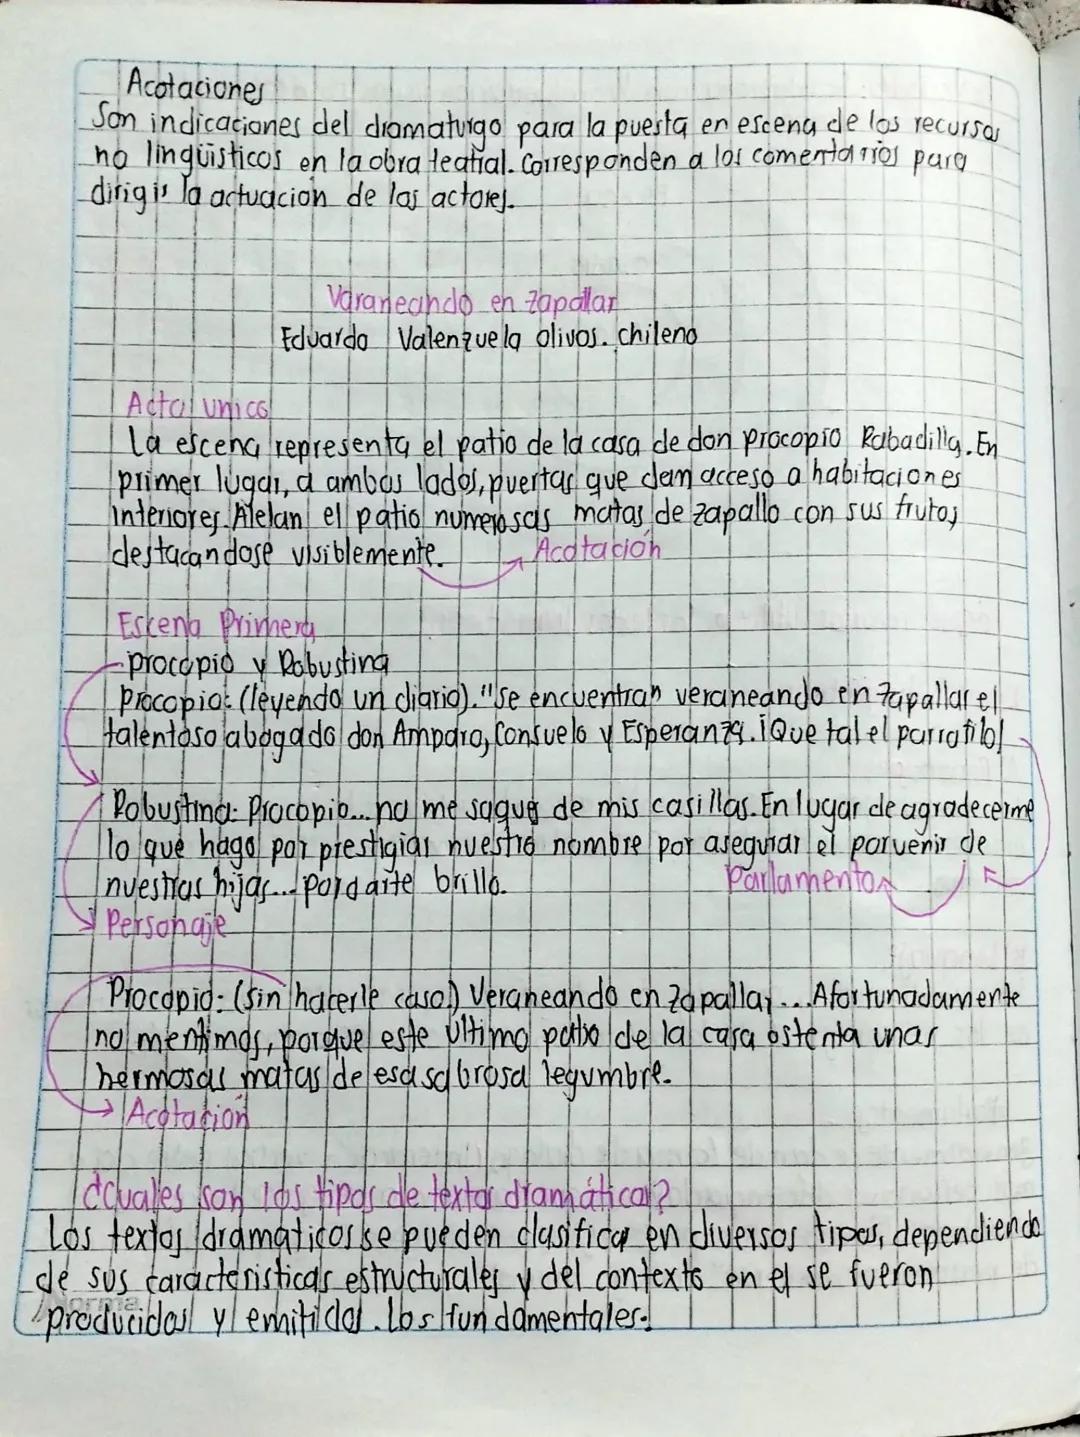 Acotaciones
Son indicaciones del dramaturgo para la puesta en escena de los recursos
no lingüisticos en la obra teatral. Corresponden a los comentarios para
dirigir la actuación de las actores.
Varaneando en Zapallar
Eduardo Valenzuela olivos. chileno
Acto unico
La escena representa el patio de la casa de don procopio Rabadilla. En
primer lugar, a ambos lados, puertas que dan acceso a habitaciones
interiores. Alelan el patio numerosas matas de zapallo con sus frutos
destacandose visiblemente. Acotación
Escena Primera
-procopio y Robustina
procopio: (leyendo un diario). "se encuentran veraneando en Zapallar el
talentoso abogado don Amparo, Consuelo y Esperanza. ¡Que tal el parrafito!
Robustina: Procopio... no me saque de mis casillas. En lugar de agradecerme
lo que hago por prestigiar nuestro nombre por asegurar el porvenir de
nuestras hijas... por darte brillo. Parlamento
Personaje
Procopio: (sin hacerle caso) Veraneando en Zapallar... Afortunadamente
no mentimos, porque este último patio de la casa ostenta unas
hermosas matas de esa sabrosa legumbre.
Acotación
¿Cuales son los tipos de textos dramáticos?
Los textos dramáticos se pueden clasificar en diversos tipos, dependiendo
de sus características estructurales y del contexto en el se fueron
norma
producidos y emitidos. Los fundamentales: